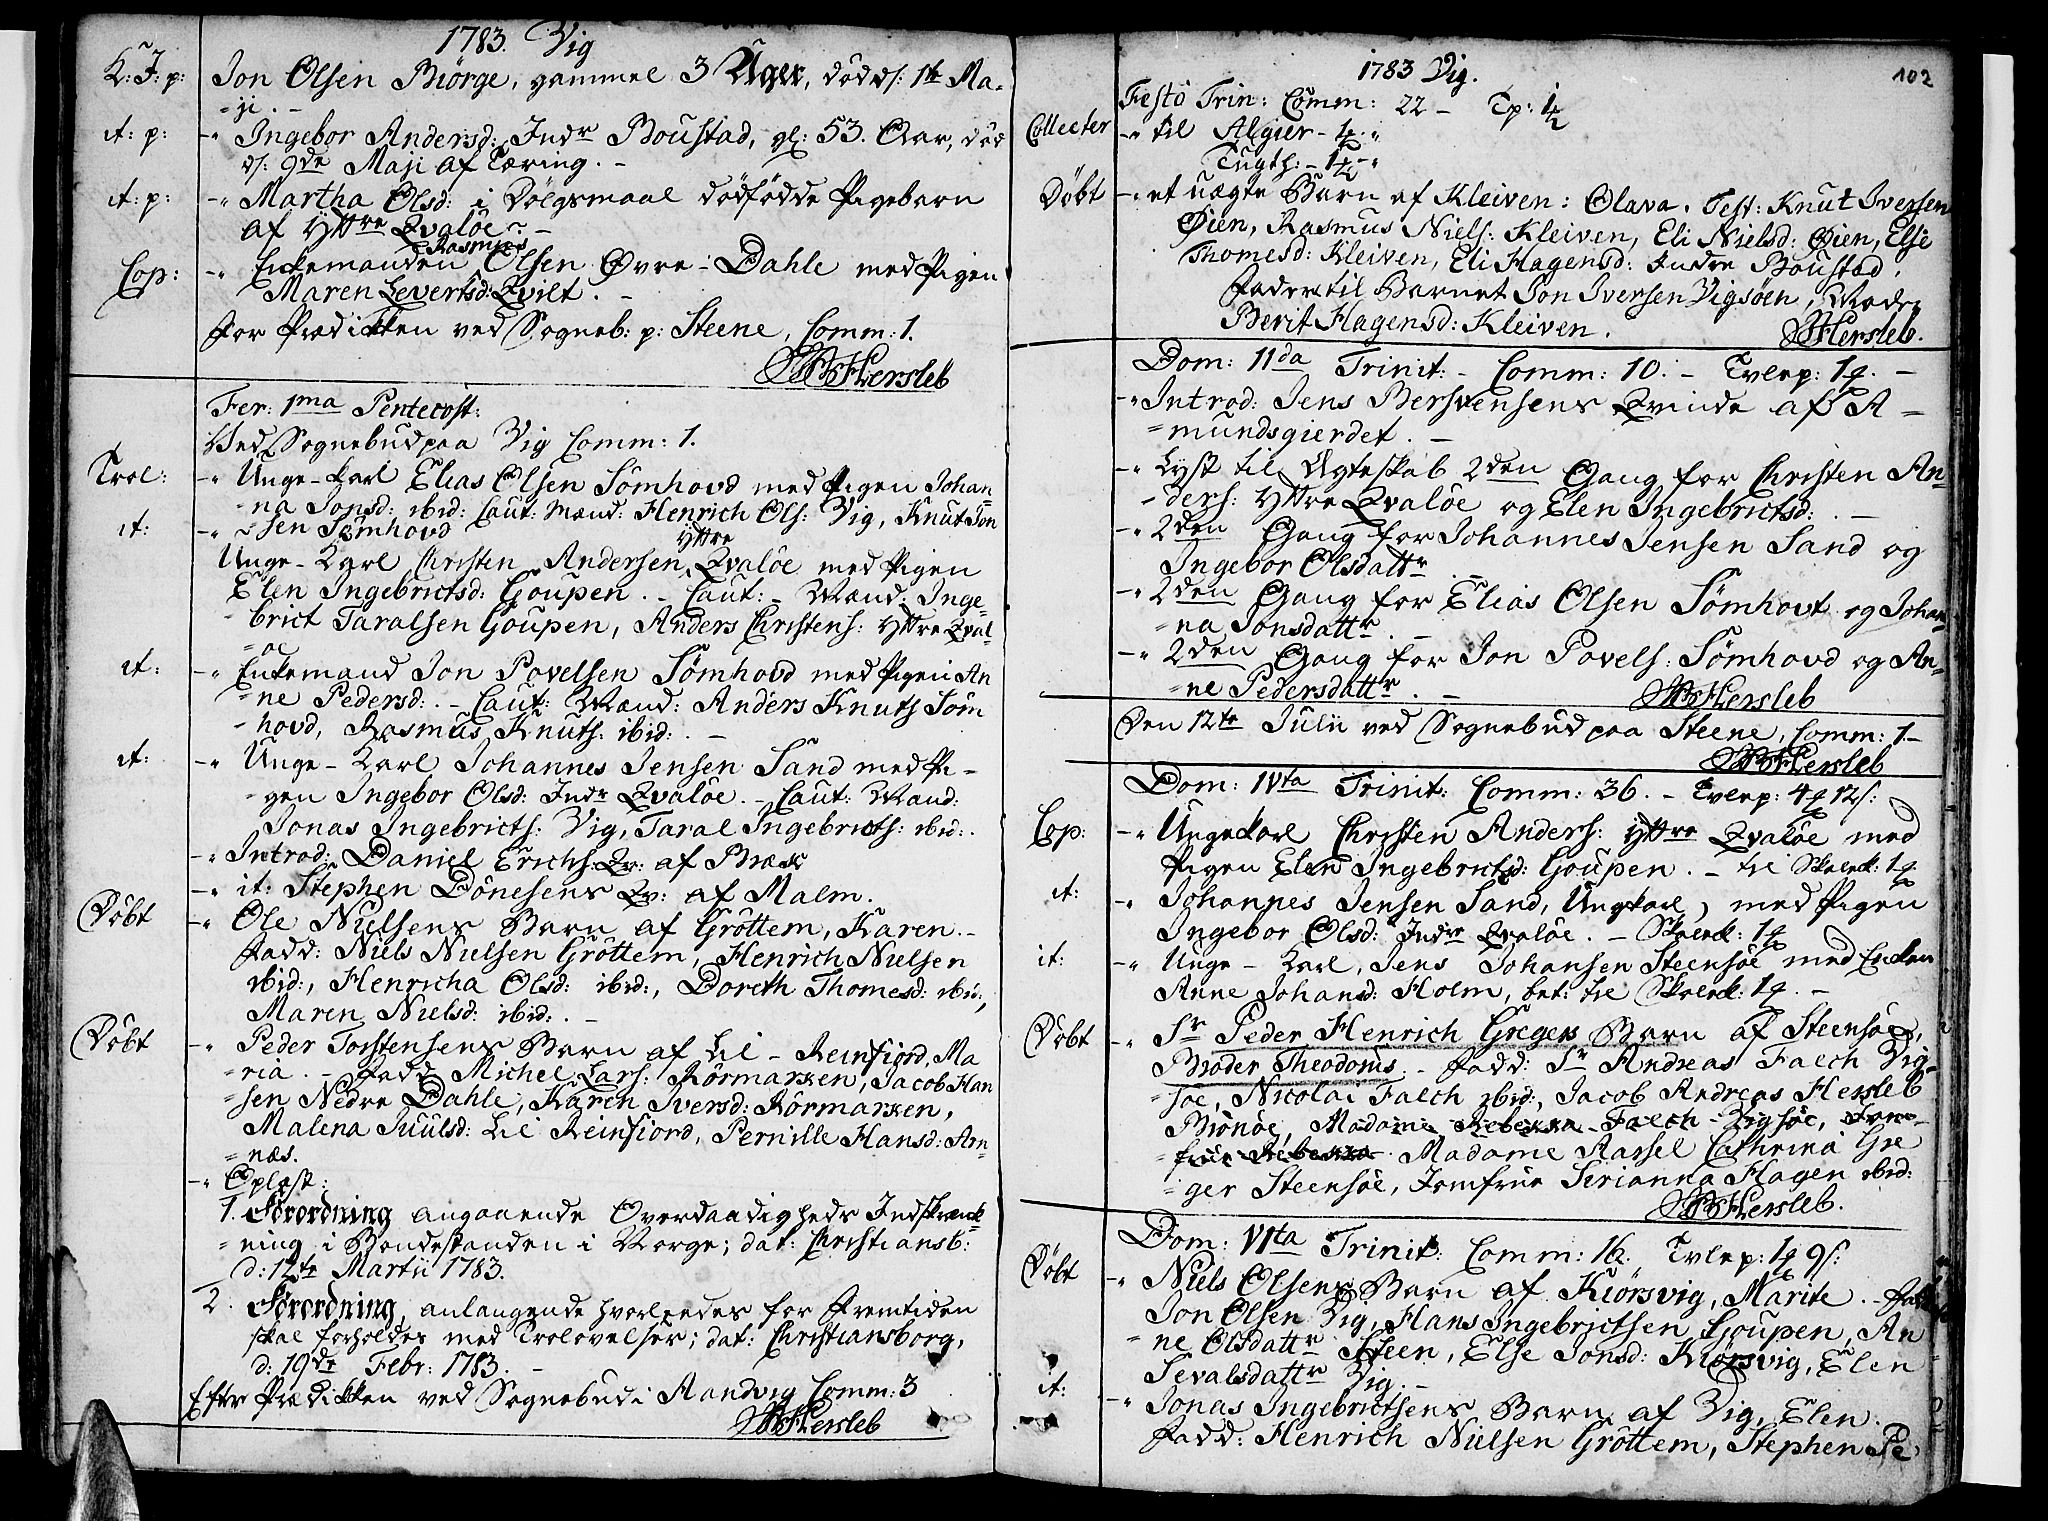 1783. Vig
K: J: p: Jon Olsen Biörge, gammel 3 Uger, död d: 1te Ma-
=ji. -
it: p: -" Ingebor Andersd: Indr Boustad, gl: 53. Aar, död
d: 9de Maji af Tæring. -
it: p: -" Martha Olsd: i Dölgsmaal dödfödde Pigebarn
af Yttre Qvalöe. -
Rasmus
Cop: -" Enkemanden Olsen Øvre-Dahle med Pigen
Maren Levertsd: Qvilt. -
For Prædikken ved Sogneb: p: Steene, Comm: 1.
Hersleb
Fer: 1ma Pentecost:
Ved Sognebud paa Vig Comm: 1.
Trol: -" Unge-Karl Elias Olsen Sömhovd med Pigen Johan=
=na Jonsd: ibid: Caut: Mænd: Henrich Ols: Vig, Knut Jon
it: -" =sen Sömhovd
Yttre
Unge-Karl Christen Andersen Qvalöe med Pigen
Elen Ingebrictsd: Goupen. - Caut: - Mænd: Inge-
brict Taralsen Goupen, Anders Christens: Yttre Qval=
=öe
it: -" Enkemand Jon Povelsen Sömhovd med Pigen An
=ne Pedersd: - Caut: Mænd: Anders Knuts Söm
=hovd, Rasmus Knuts: ibid: -
it: -" Unge-Karl Johannes Jensen Sand med Pi-
=gen Ingebor Olsd: Indr Qvalöe. - Caut: Mænd:
Jonas Ingebricts: Vig, Taral Ingebricts: ibid:
-" Introd: Daniel Erichs: Qv: af Bræk
-" it: Stephen Dönesens Qv: af Malm.
Döbt -" Ole Nielsens Barn af Gröttem, Karen. -
Fadd: Niels Nielsen Gröttem, Henrich Nielsen
ibid:, Henricha Olsd: ibid:, Doreth Thomesd: ibid:,
Maren Nielsd: ibid: -
Döbt -" Peder Torstensens Barn af Lii-Reinfiord, Ma
=ria. - Fadd: Michel Lars: Rörmarken, Jacob Han
=sen Nedre Dahle, Karen Iversd: Rörmarken,
Malena Juulsd: Lii Reinfiord, Pernille Hansd: Arn=
=næs.
-" Oplæst:
1. Forordning angaaende Overdaadigheds Indskrænk=
=ning i Bondestanden i Norge; dat: Christiansb:
d: 12te Martii 1783.
2. Forordning, anlangende hvorledes for Fremtiden
skal forholdes med Trolovelser; dat: Christiansborg,
d: 19de Febr: 1783. -
Efter Prædikken ved Sognebud i Aandvig Comm: 3
Hersleb
1783 Vig.
102
Festo Trin: Comm: 22 -
Collecter -" til Algier - 1
Tugth: - 1
Döbt -" et uægte Barn af Kleiven: Olava. Test: Knut Iversen
Øien, Rasmus Niels: Kleiven, Eli Nielsd: Øien, Else
Thomesd: Kleiven, Eli Hagensd: Indre Boustad.
Fader til Barnet Jon Iversen Vigsöen, Moder
Berit Hagensd: Kleiven.
Hersleb.
Dom: 11da Trinit: - Comm: 10. - Tvlep: 1
-" Introd: Jens Bersvensens Qvinde af A-
=mundsgierdet. -
-" Lyst til Ægteskab 2den Gang for Christen An=
=ders: Yttre Qvalöe og Elen Ingebrictsd: -
-" 2den Gang for Johannes Jensen Sand og
Ingebor Olsdattr. -
-" 2den Gang for Elias Olsen Sömhovt og Johan=
=na Jonsdattr. -
-" 2den Gang for Jon Povels: Sömhovd og An=
=ne Pedersdattr. -
Hersleb
Den 12te Julii ved Sognebud paa Steene, Comm: 1. -
Hersleb
Dom: IVta Trinit: Comm: 36. - Tvlep: 4 12s:
Cop: -" Ungekarl Christen Anders: Yttre Qvalöe med
Pigen Elen Ingebrictsd: Goupen. - til Skoelek: 1
it: -" Johannes Jensen Sand, Ungkarl, med Pigen
Ingebor Olsd: Indr Qvalöe. - Skoelek: 1
it: -" Unge-Karl, Jens Johansen Steensöe med Enken
Anne Johansd: Holm, bet: til Skoelek: 1 -
Döbt -" Sr Peder Henrich Gregers Barn af Steensöe,
Broder Theodorus. - Fadd: Sr Andreas Falch Vig=
=söe, Nicolai Falch ibid:, Jacob Andreas Hersleb
Brönöe, Madame Rebekka Falch Vigsöe, Jom=
=frue Rebekka Madame Aassel Cathrina Gre
=ger Steensöe, Jomfrue Sirianna Hagen ibid:
Hersleb.
Dom: VIta Trinit: Comm: 16. Tvlep: 1 9s:
Döbt -" Niels Olsens Barn af Kiörsvig, Marite. - Fadd:
Jon Olsen Vig, Hans Ingebrictsen Goupen, An
=ne Olsdattr Steen, Else Jonsd: Kiörsvig, Elen
Sevalsdattr Vig. -
it: -" Jonas Ingebrictsens Barn af Vig, Elen.
Fadd: Henrich Nielsen Gröttem, Stephen Pe